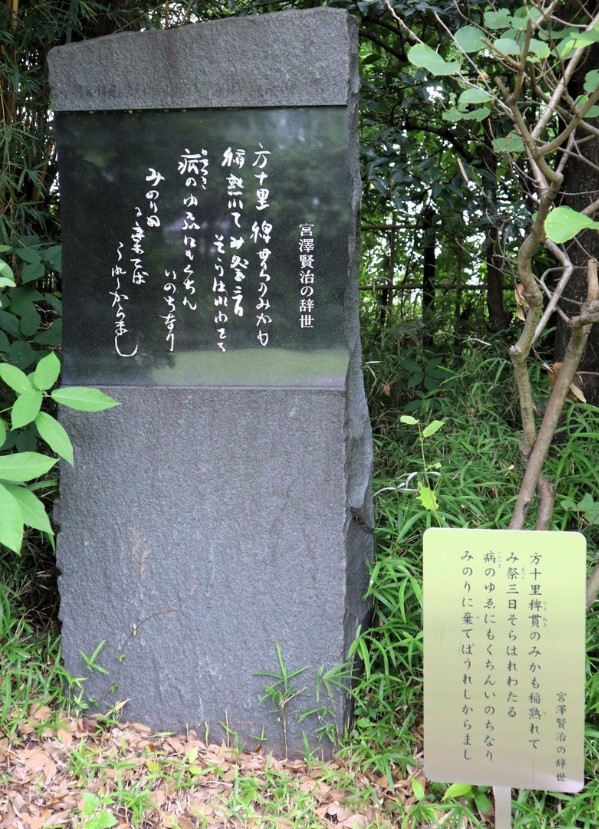 宮澤賢治の辞世
方十里稗貫のみかも
稲熟れてみ祭三日
そらはれわたる
病のゆゑにもくちん
いのちなり
みのりに
棄てば
うれしからまし
宮澤賢治の辞世
方十里稗貫のみかも稲熟れて
み祭三日そらはれわたる
病のゆゑにもくちんいのちなり
みのりに棄てばうれしからまし